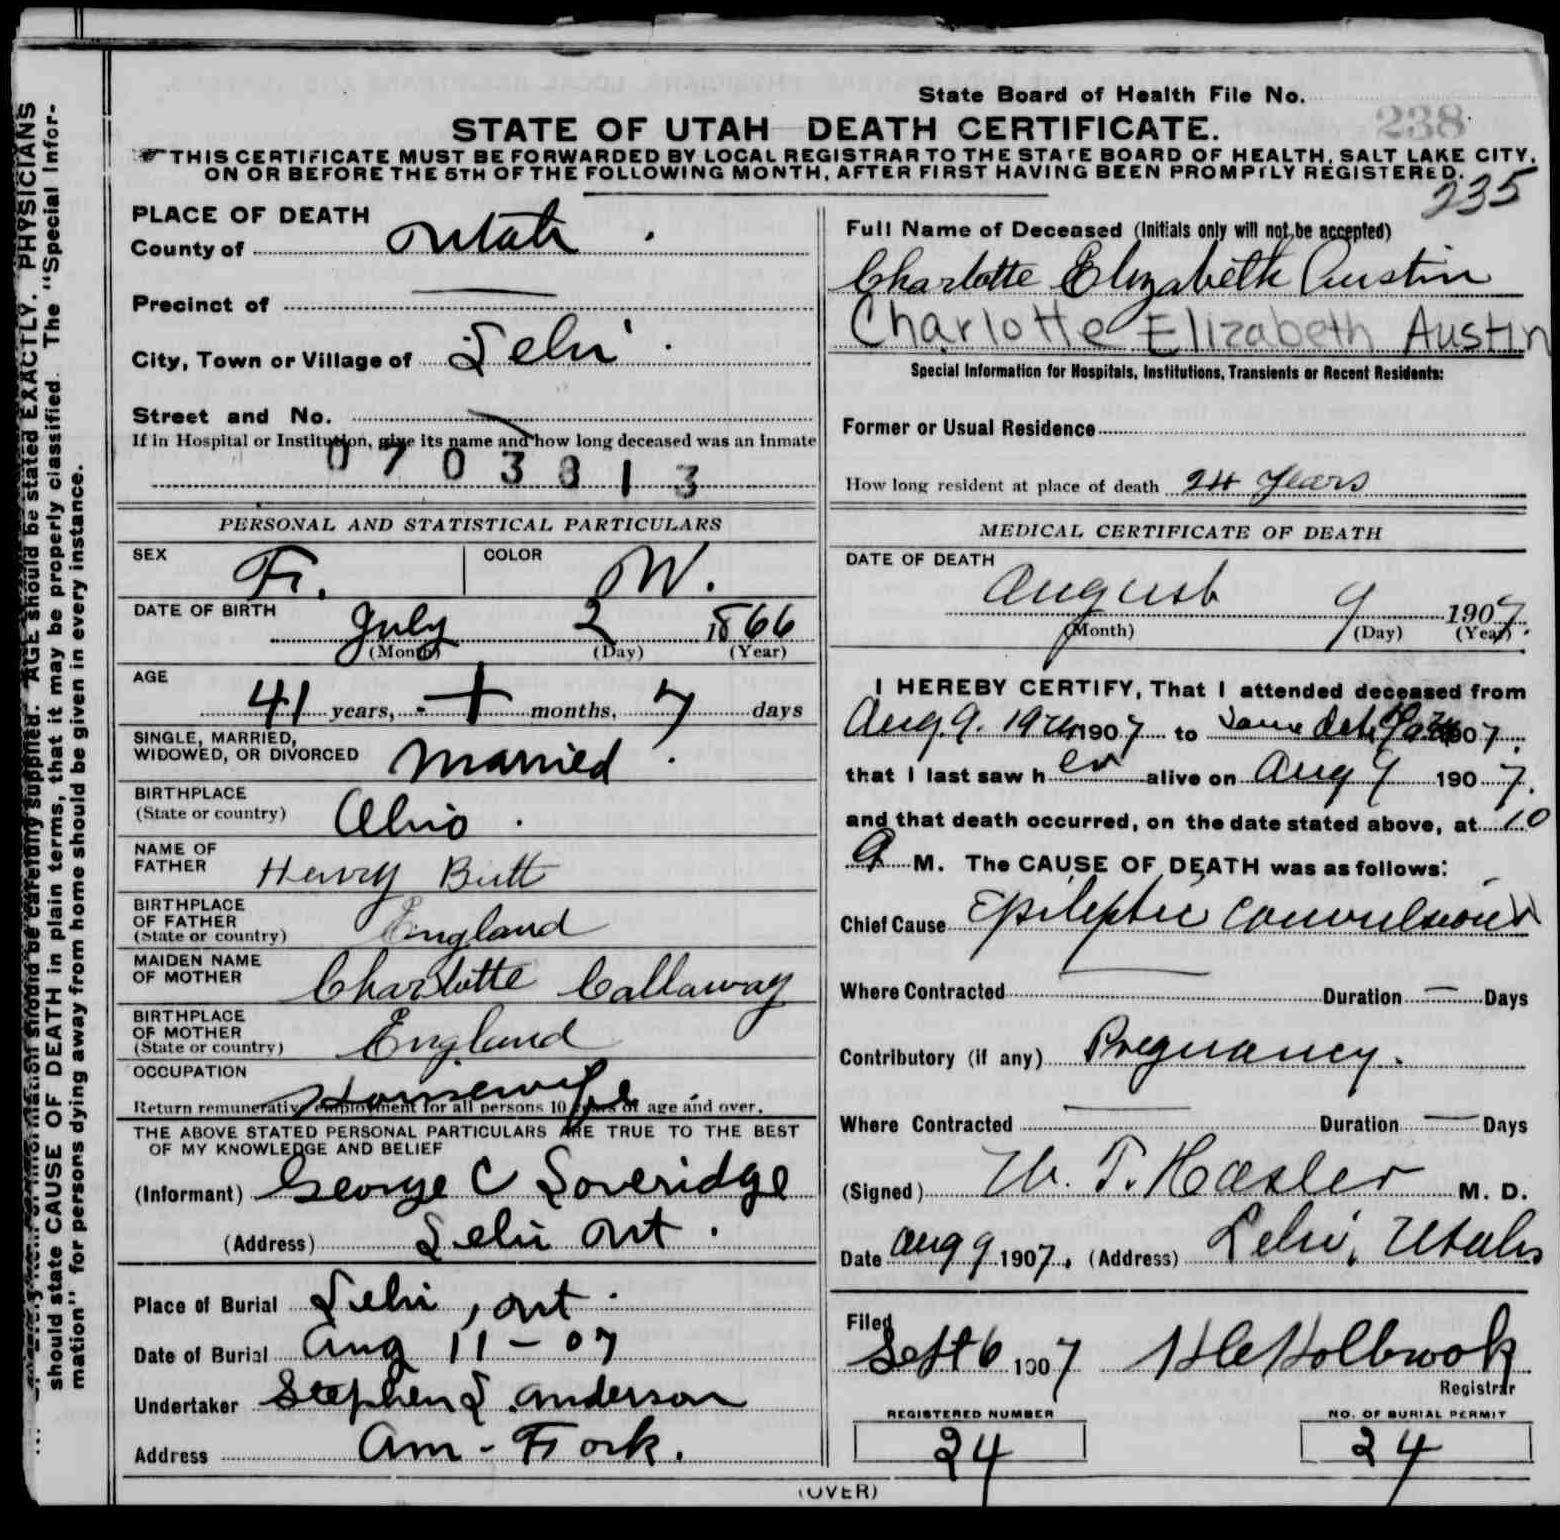 State Board of Health File No.
238
STATE OF UTAH DEATH CERTIFICATE.
THIS CERTIFICATE MUST BE FORWARDED BY LOCAL REGISTRAR TO THE STATE BOARD OF HEALTH, SALT LAKE CITY,
ON OR BEFORE THE 5TH OF THE FOLLOWING MONTH, AFTER FIRST HAVING BEEN PROMPTLY REGISTERED.
235
PLACE OF DEATH
County of Utah.
Precinct of —
City, Town or Village of Lehi.
Street and No.
If in Hospital or Institution, give its name and how long deceased was an inmate
0703813
PERSONAL AND STATISTICAL PARTICULARS
SEX F. COLOR W.
DATE OF BIRTH July 2 1866
(Month) (Day) (Year)
AGE 41 years, 1 months, 7 days
SINGLE, MARRIED,
WIDOWED, OR DIVORCED Married.
BIRTHPLACE
(State or country) Ohio.
NAME OF
FATHER Henry Butt
BIRTHPLACE
OF FATHER
(State or country) England
MAIDEN NAME
OF MOTHER Charlotte Callaway
BIRTHPLACE
OF MOTHER
(State or country) England
OCCUPATION Housewife.
Return remunerative employment for all persons 10 years of age and over.
THE ABOVE STATED PERSONAL PARTICULARS ARE TRUE TO THE BEST
OF MY KNOWLEDGE AND BELIEF
(Informant) George C Loveridge
(Address) Lehi Ut.
Place of Burial Lehi, Ut.
Date of Burial Aug 11-07
Undertaker Stephen L. Anderson
Address Am-Fork.
Full Name of Deceased (Initials only will not be accepted)
Charlotte Elizabeth Austin
Charlotte Elizabeth Austin
Special Information for Hospitals, Institutions, Transients or Recent Residents:
Former or Usual Residence
How long resident at place of death 24 years
MEDICAL CERTIFICATE OF DEATH
DATE OF DEATH
August 9 1907.
(Month) (Day) (Year)
I HEREBY CERTIFY, That I attended deceased from
Aug. 9. 1907 to same date 1907.
that I last saw her alive on Aug 9 1907.
and that death occurred, on the date stated above, at 10
A M. The CAUSE OF DEATH was as follows:
Chief Cause Epileptic Convulsions
Where Contracted Duration — Days
Contributory (if any) Pregnancy.
Where Contracted Duration — Days
(Signed) W. T. Hasler M. D.
Date Aug 9 1907. (Address) Lehi, Utah
Filed
Sept 6 1907 Holbrook
Registrar
REGISTERED NUMBER
24
NO. OF BURIAL PERMIT
24
(OVER)
AGE should be stated EXACTLY. PHYSICIANS
should state CAUSE OF DEATH in plain terms, that it may be properly classified. The "Special Infor-
mation" for persons dying away from home should be given in every instance.